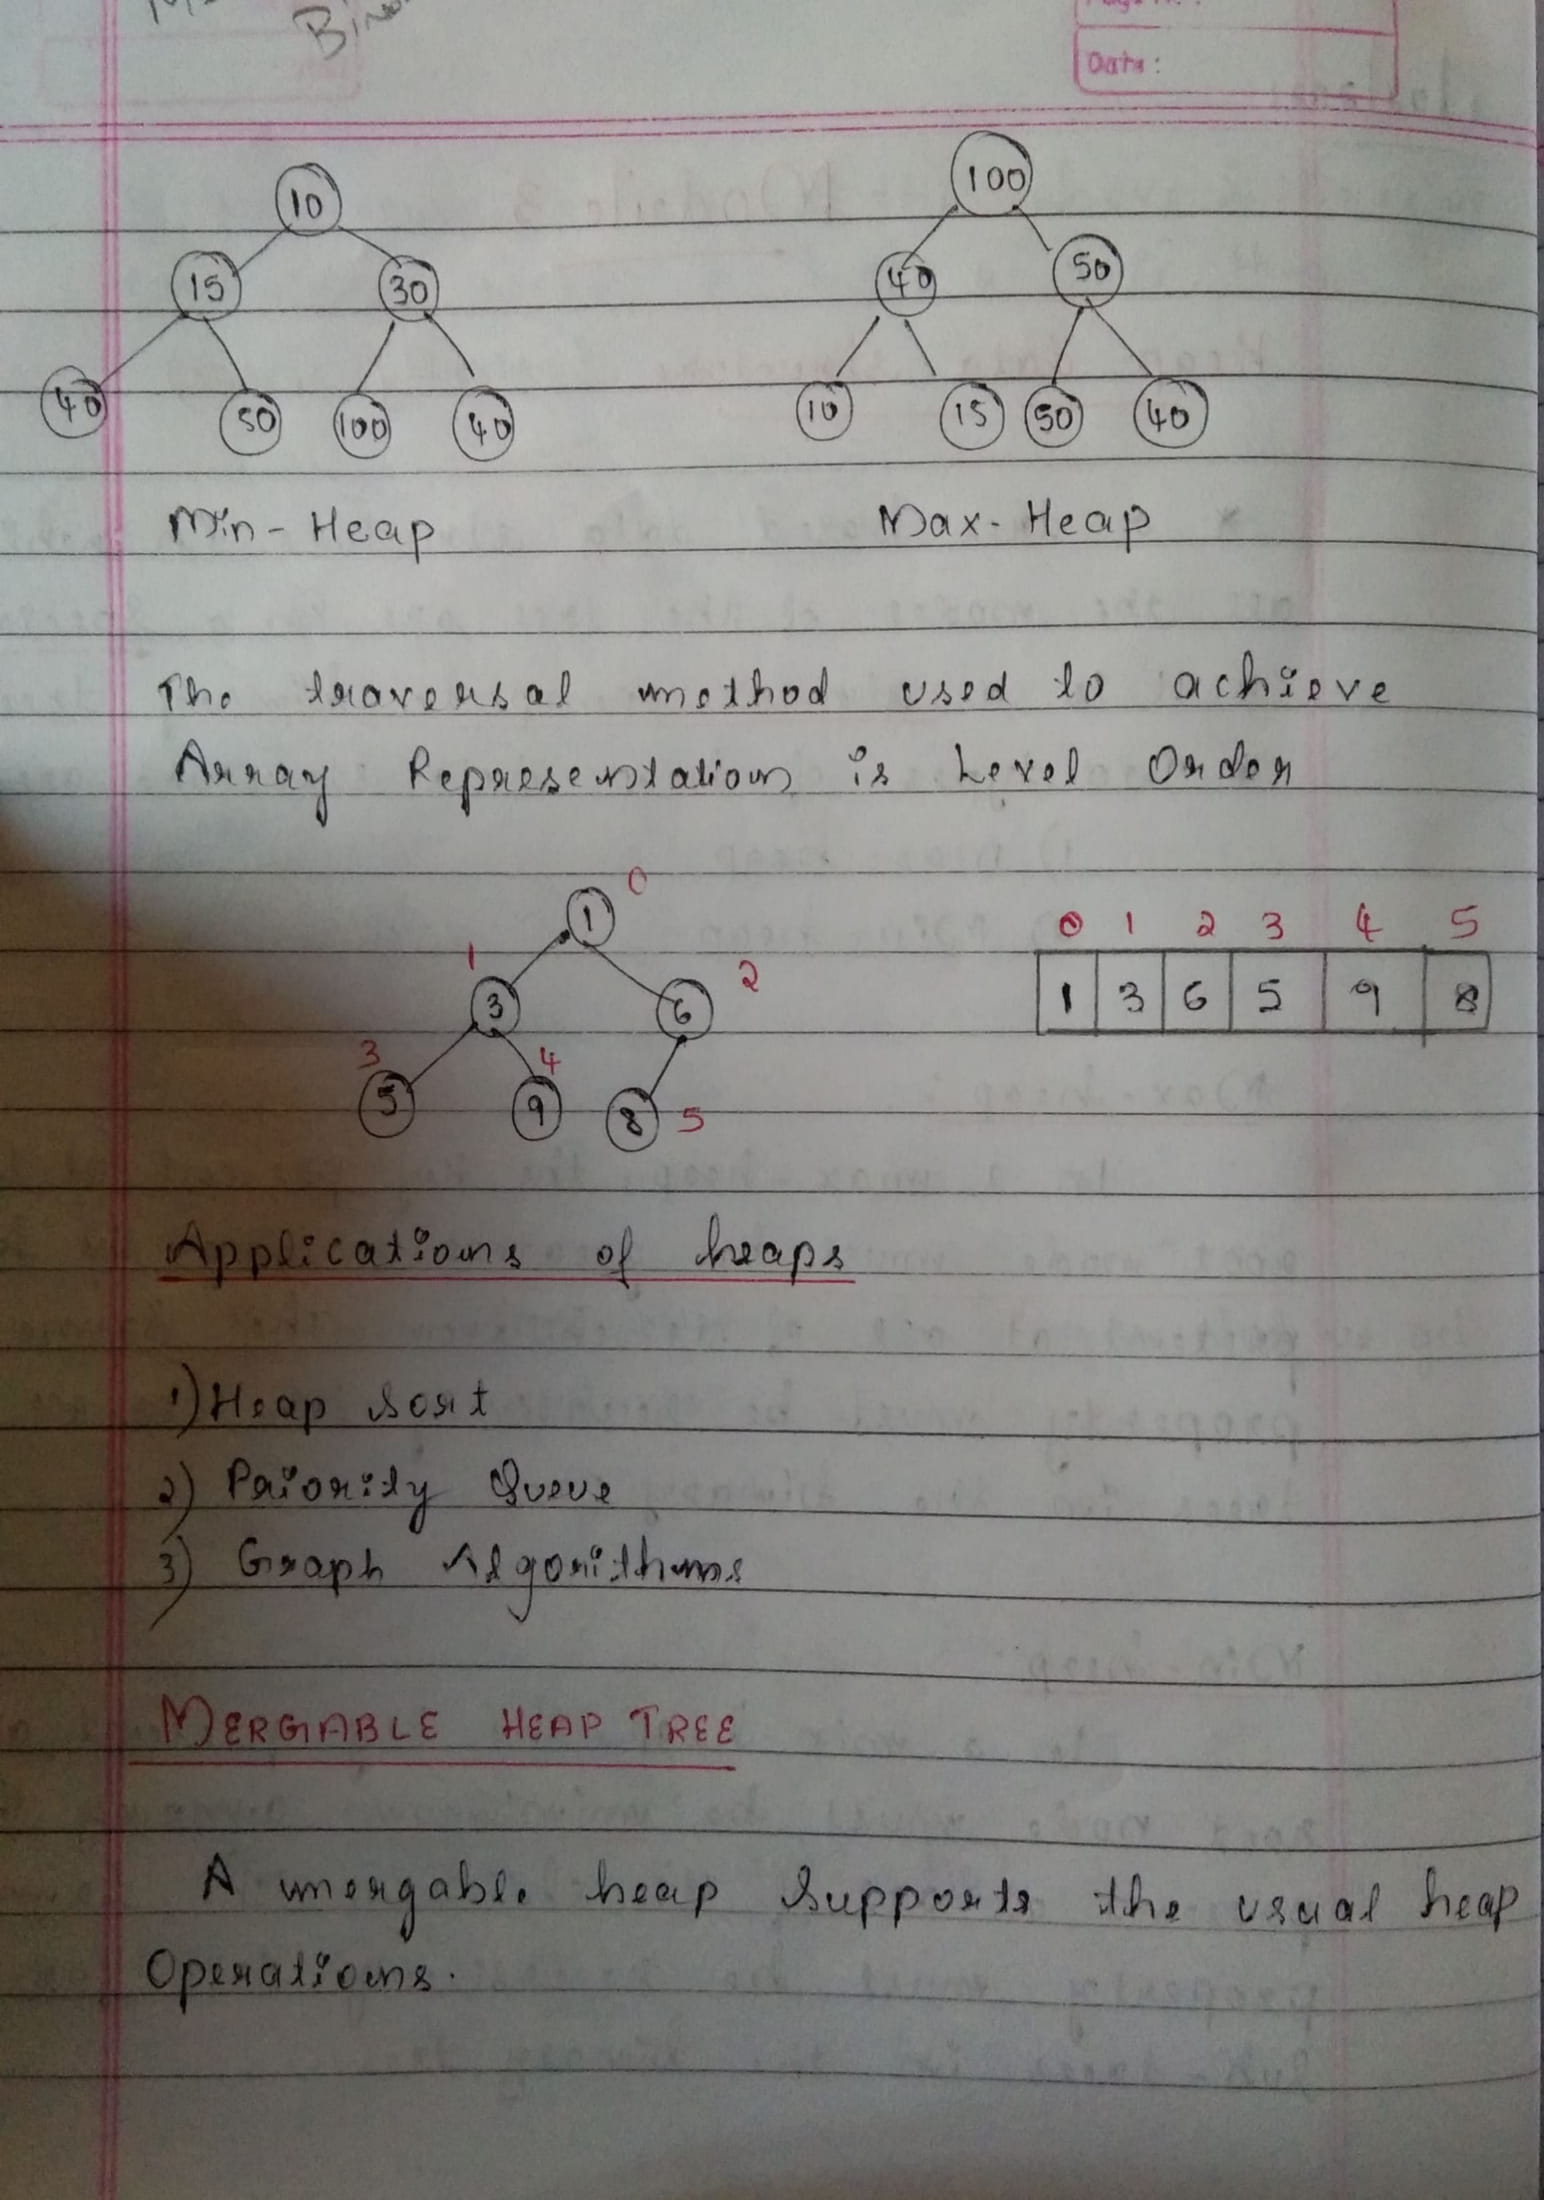 Date:
10
100
15
30
40
50
40
50
100
40
10
15
50
40
Min-Heap
Max-Heap
The traversal method used to achieve
Array Representation is Level Order
0
1
1
3
2
6
3
5
4
9
8
5
0 1 2 3 4 5
1 3 6 5 9 8
Applications of heaps
1) Heap Sort
2) Priority Queue
3) Graph Algorithms
MERGABLE HEAP TREE
A mergable heap supports the usual heap
Operations.